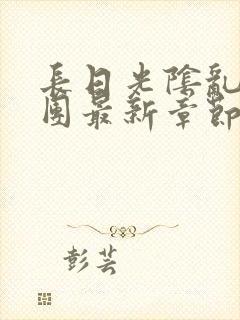 長日光陰亂
團最新章節
彭芸